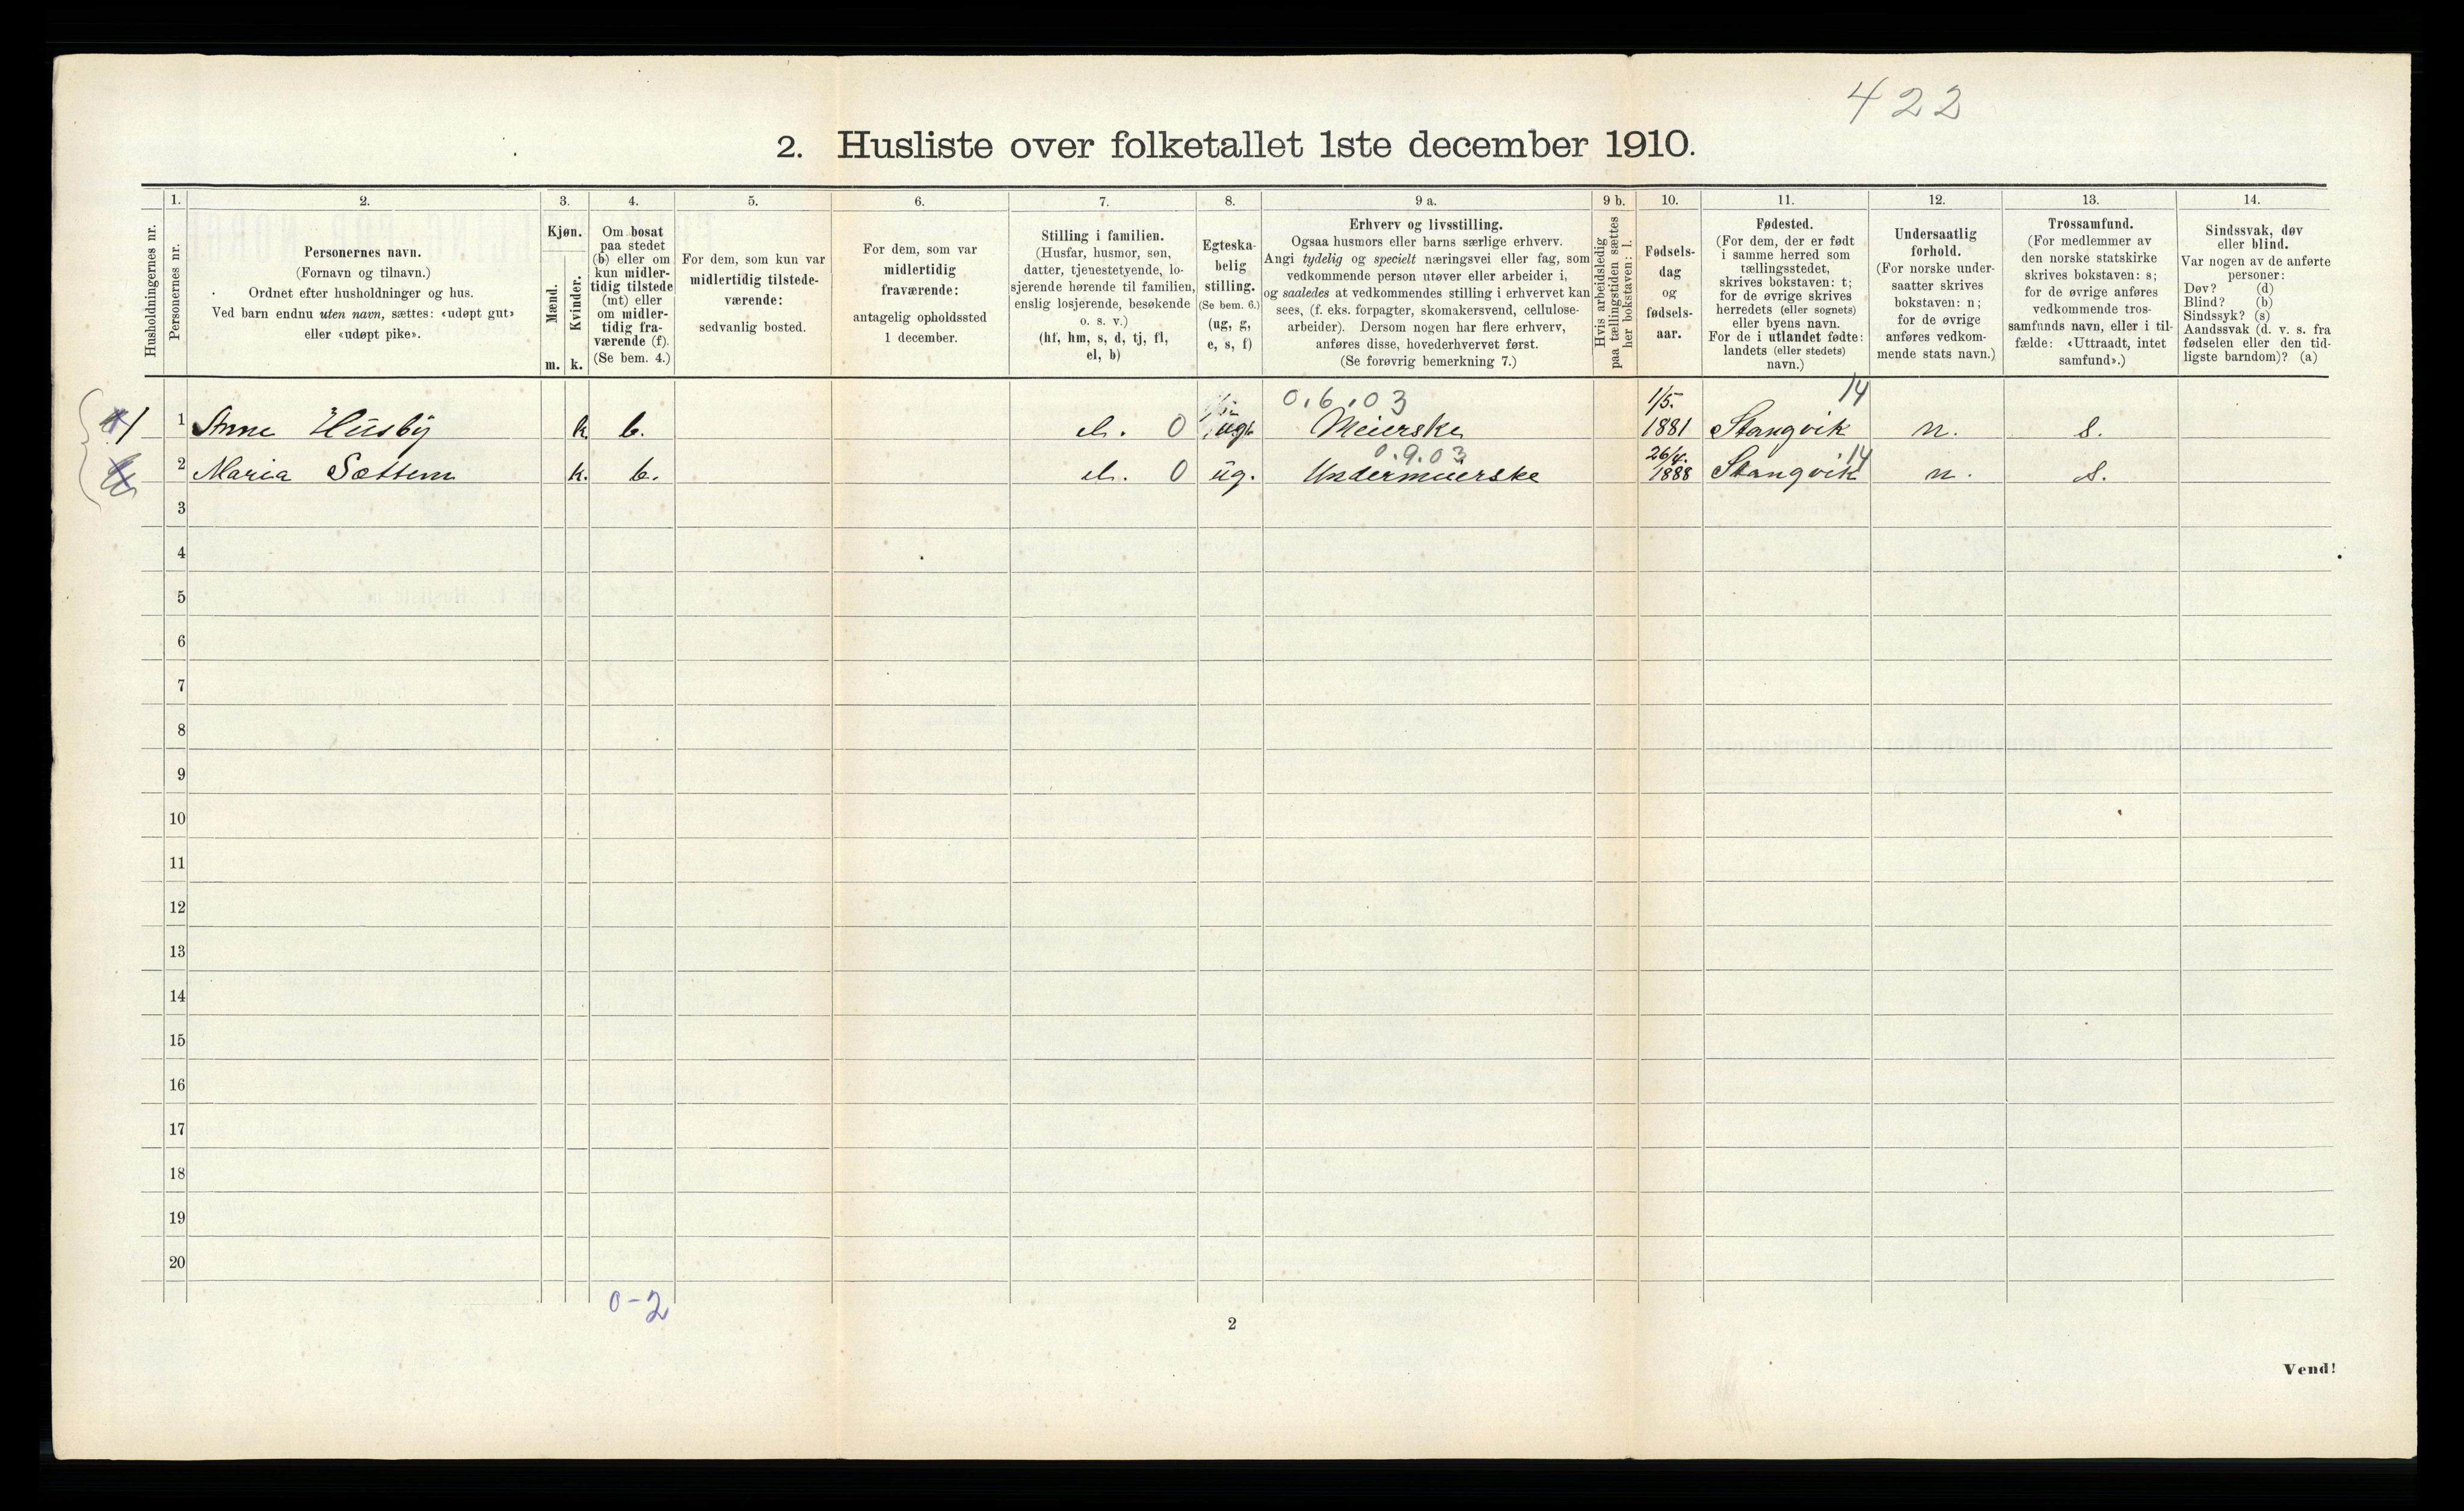 422
2. Husliste over folketallet 1ste december 1910.
1. 2. 3. 4. 5. 6. 7. 8. 9 a. 9 b. 10. 11. 12. 13. 14.
Husholdningernes nr.
Personernes nr.
Personernes navn.
(Fornavn og tilnavn.)
Ordnet efter husholdninger og hus.
Ved barn endnu uten navn, sættes: «udøpt gut»
eller «udøpt pike».
Kjøn.
Mænd.
Kvinder.
m. k.
Om bosat
paa stedet
(b) eller om
kun midler-
tidig tilstede
(mt) eller
om midler-
tidig fra-
værende (f).
(Se bem. 4.)
For dem, som kun var
midlertidig tilstede-
værende:
sedvanlig bosted.
For dem, som var
midlertidig
fraværende:
antagelig opholdssted
1 december.
Stilling i familien.
(Husfar, husmor, søn,
datter, tjenestetyende, lo-
sjerende hørende til familien,
enslig losjerende, besøkende
o. s. v.)
(hf, hm, s, d, tj, fl,
el, b)
Egteska-
belig
stilling.
(Se bem. 6.)
(ug, g,
e, s, f)
Erhverv og livsstilling.
Ogsaa husmors eller barns særlige erhverv.
Angi tydelig og specielt næringsvei eller fag, som
vedkommende person utøver eller arbeider i,
og saaledes at vedkommendes stilling i erhvervet kan
sees, (f. eks. forpagter, skomakersvend, cellulose-
arbeider). Dersom nogen har flere erhverv,
anføres disse, hovederhvervet først.
(Se forøvrig bemerkning 7.)
Hvis arbeidsledig
paa tællingstiden sættes
her bokstaven: l.
Fødsels-
dag
og
fødsels-
aar.
Fødested.
(For dem, der er født
i samme herred som
tællingsstedet,
skrives bokstaven: t;
for de øvrige skrives
herredets (eller sognets)
eller byens navn.
For de i utlandet fødte:
landets (eller stedets)
navn.)
Undersaatlig
forhold.
(For norske under-
saatter skrives
bokstaven: n;
for de øvrige
anføres vedkom-
mende stats navn.)
Trossamfund.
(For medlemmer av
den norske statskirke
skrives bokstaven: s;
for de øvrige anføres
vedkommende tros-
samfunds navn, eller i til-
fælde: «Uttraadt, intet
samfund».)
Sindssvak, døv
eller blind.
Var nogen av de anførte
personer:
Døv? (d)
Blind? (b)
Sindssyk? (s)
Aandssvak (d. v. s. fra
fødselen eller den tid-
ligste barndom)? (a)
0.6.03 1/5. 14
1 Anne Husby k. b. el. 0 ug. Meierske 1881 Stangvik n. s.
0.9.03 26/4. 14
2 Maria Sættem k. b. el. 0 ug. Undermeierske 1888 Stangvik n. s.
3
4
5
6
7
8
9
10
11
12
13
14
15
16
17
18
19
20
0-2
2
Vend!